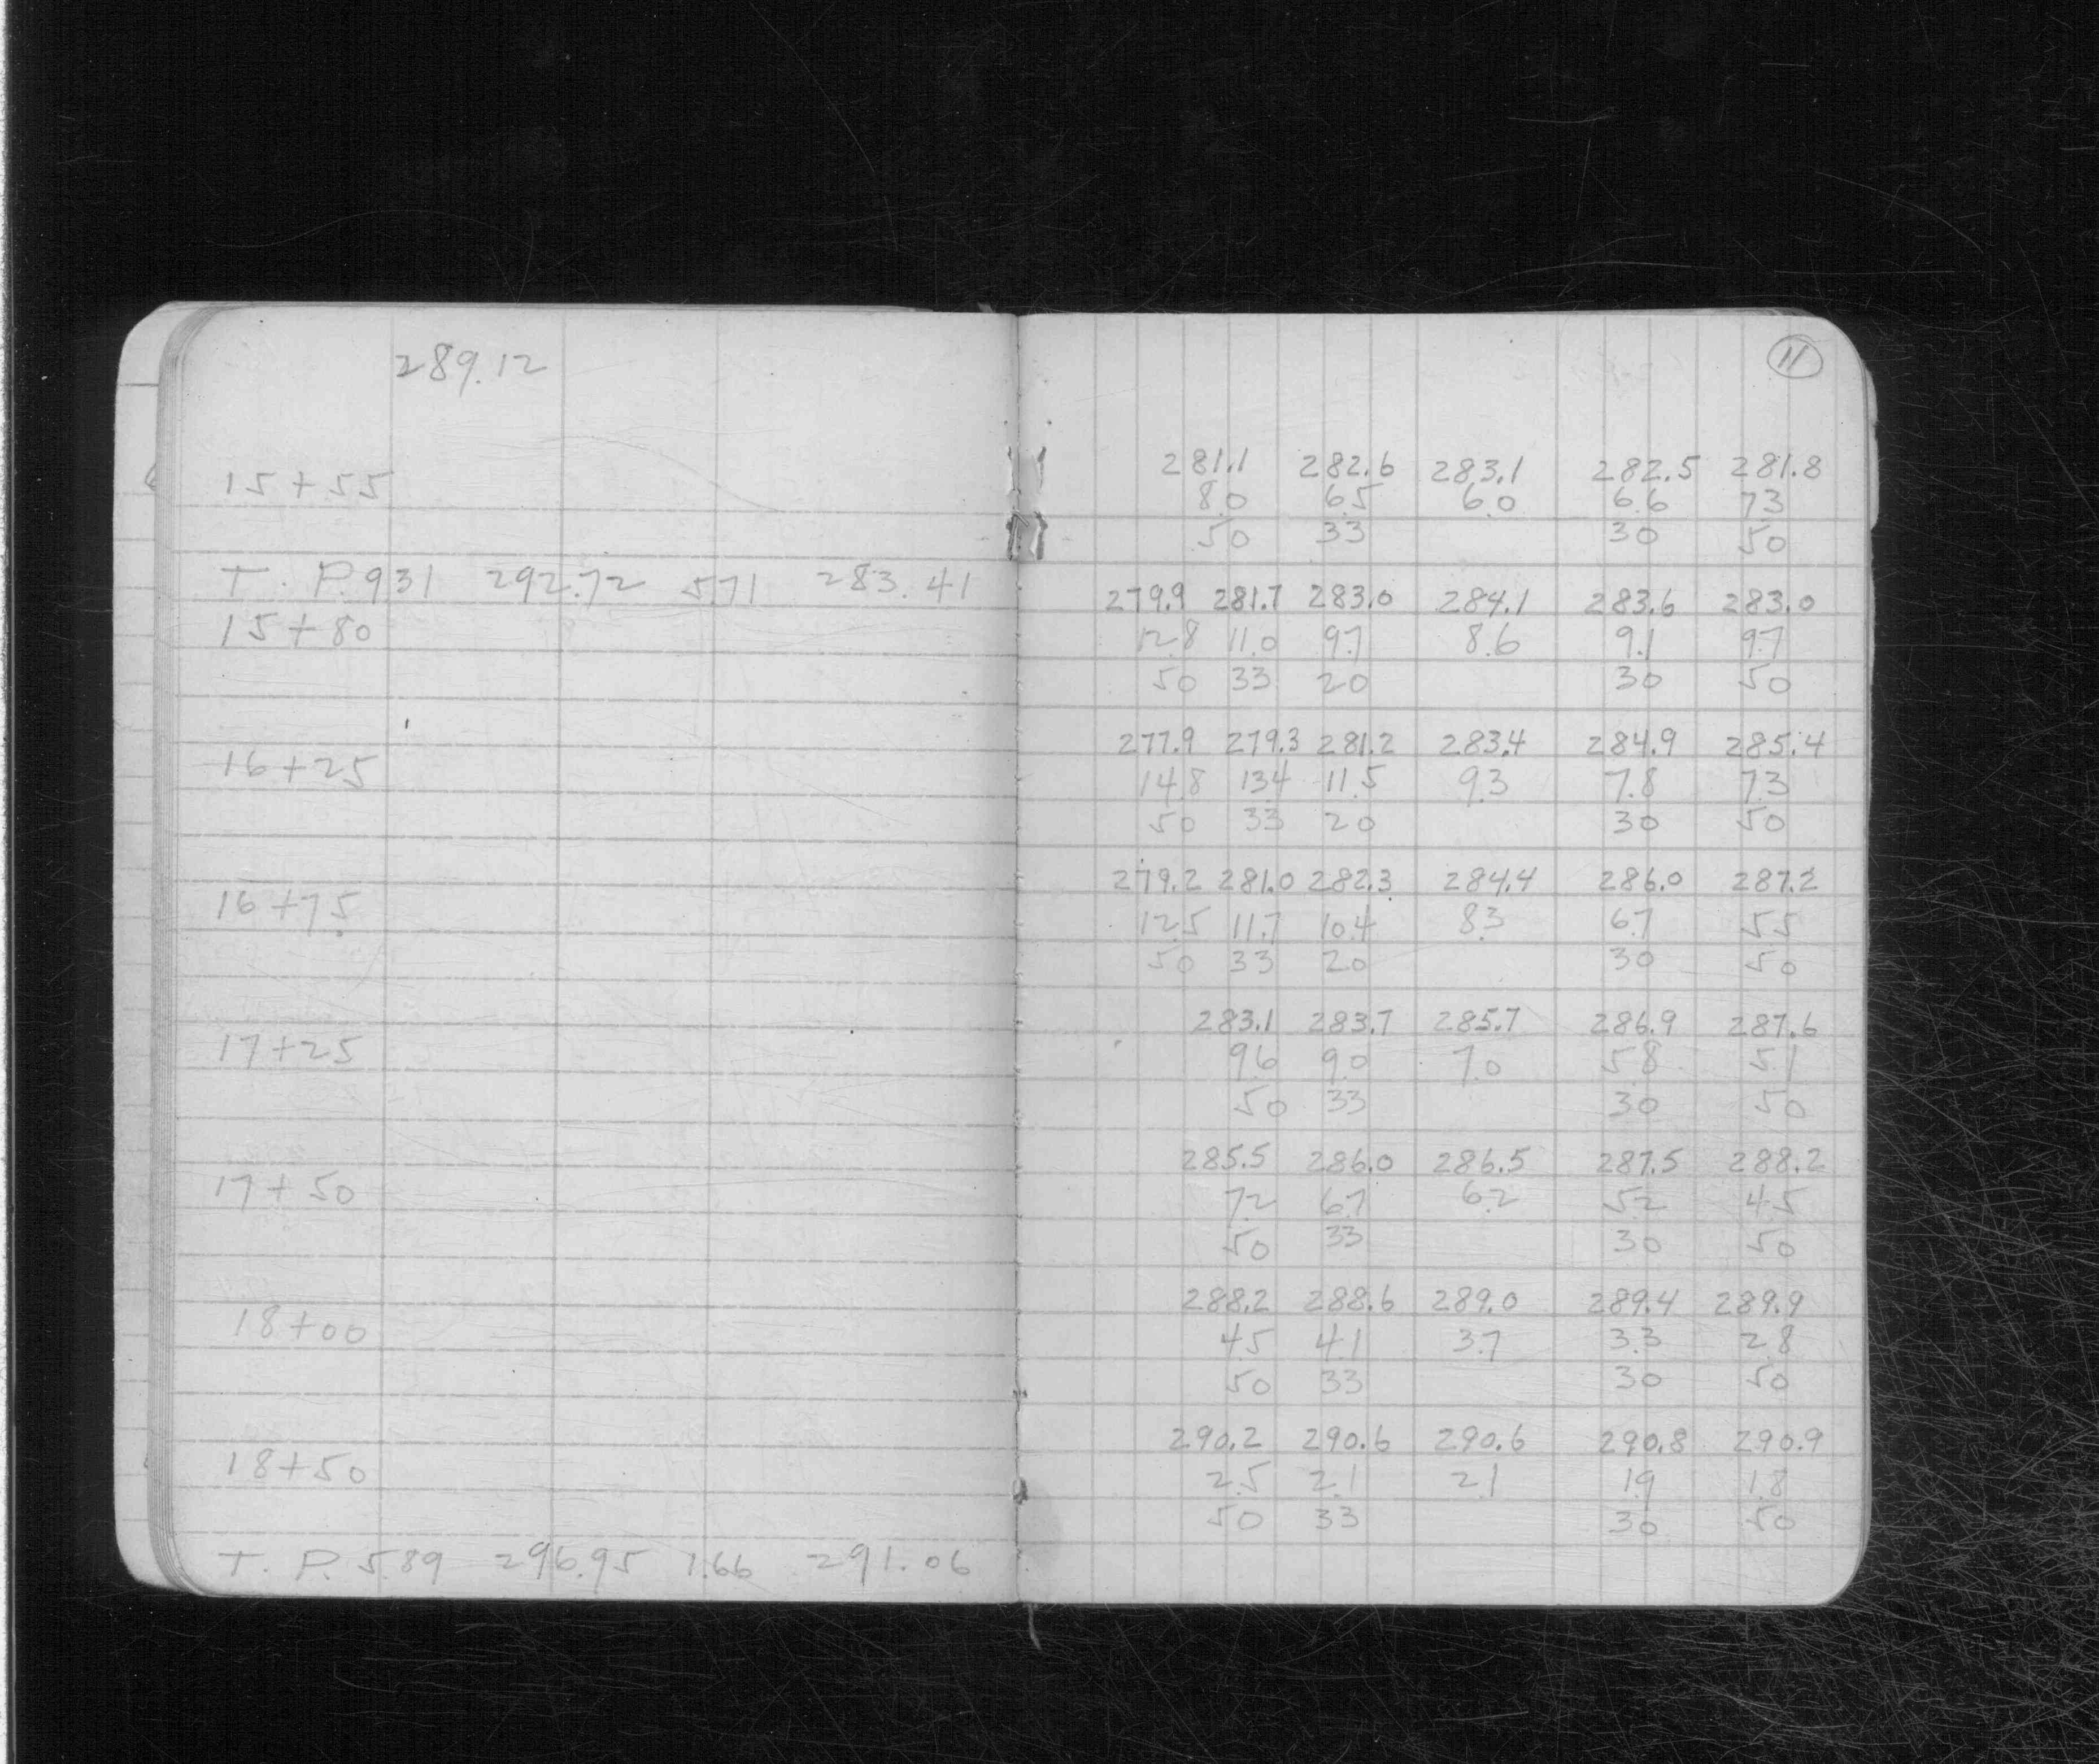 289.12
11
281.1 282.6 283.1 282.5 281.8
15+55 8.0 6.5 6.0 6.6 7.3
50 33 30 50
T. P. 9.31 292.72 5.71 283.41
279.9 281.7 283.0 284.1 283.6 283.0
15+80 12.8 11.0 9.7 8.6 9.1 9.7
50 33 20 30 50
277.9 279.3 281.2 283.4 284.9 285.4
16+25 14.8 13.4 11.5 9.3 7.8 7.3
50 33 20 30 50
279.2 281.0 282.3 284.4 286.0 287.2
16+75 12.5 11.7 10.4 8.3 6.7 5.5
50 33 20 30 50
283.1 283.7 285.7 286.9 287.6
17+25 9.6 9.0 7.0 5.8 5.1
50 33 30 50
285.5 286.0 286.5 287.5 288.2
17+50 7.2 6.7 6.2 5.2 4.5
50 33 30 50
288.2 288.6 289.0 289.4 289.9
18+00 4.5 4.1 3.7 3.3 2.8
50 33 30 50
290.2 290.6 290.6 290.8 290.9
18+50 2.5 2.1 2.1 1.9 1.8
50 33 30 50
T. P. 5.89 296.95 1.66 291.06